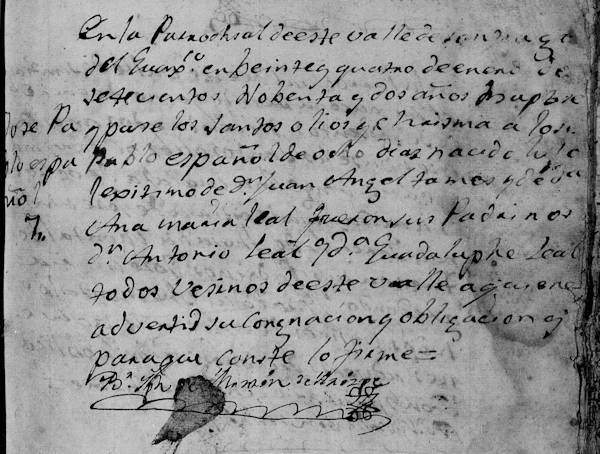 En la Parrochial de este valle de
del Guaxo. en beinte y quatro de enero de
setecientos Nobenta y dos años Baptise
Jose Pa y puse los santos olios y chrisma a Jose
blo espa Pablo español de ocho dias nacido hijo
ñol lexitimo de Dn. Juan Angel tames y de Da.
7. Ana maria leal fueron sus Padrinos
Dn. Antonio leal y Da. Guadaluphe leal
todos vesinos de este valle a quienes
adverti su Congnacion y obligacion y
para que Conste lo firme =
Br.